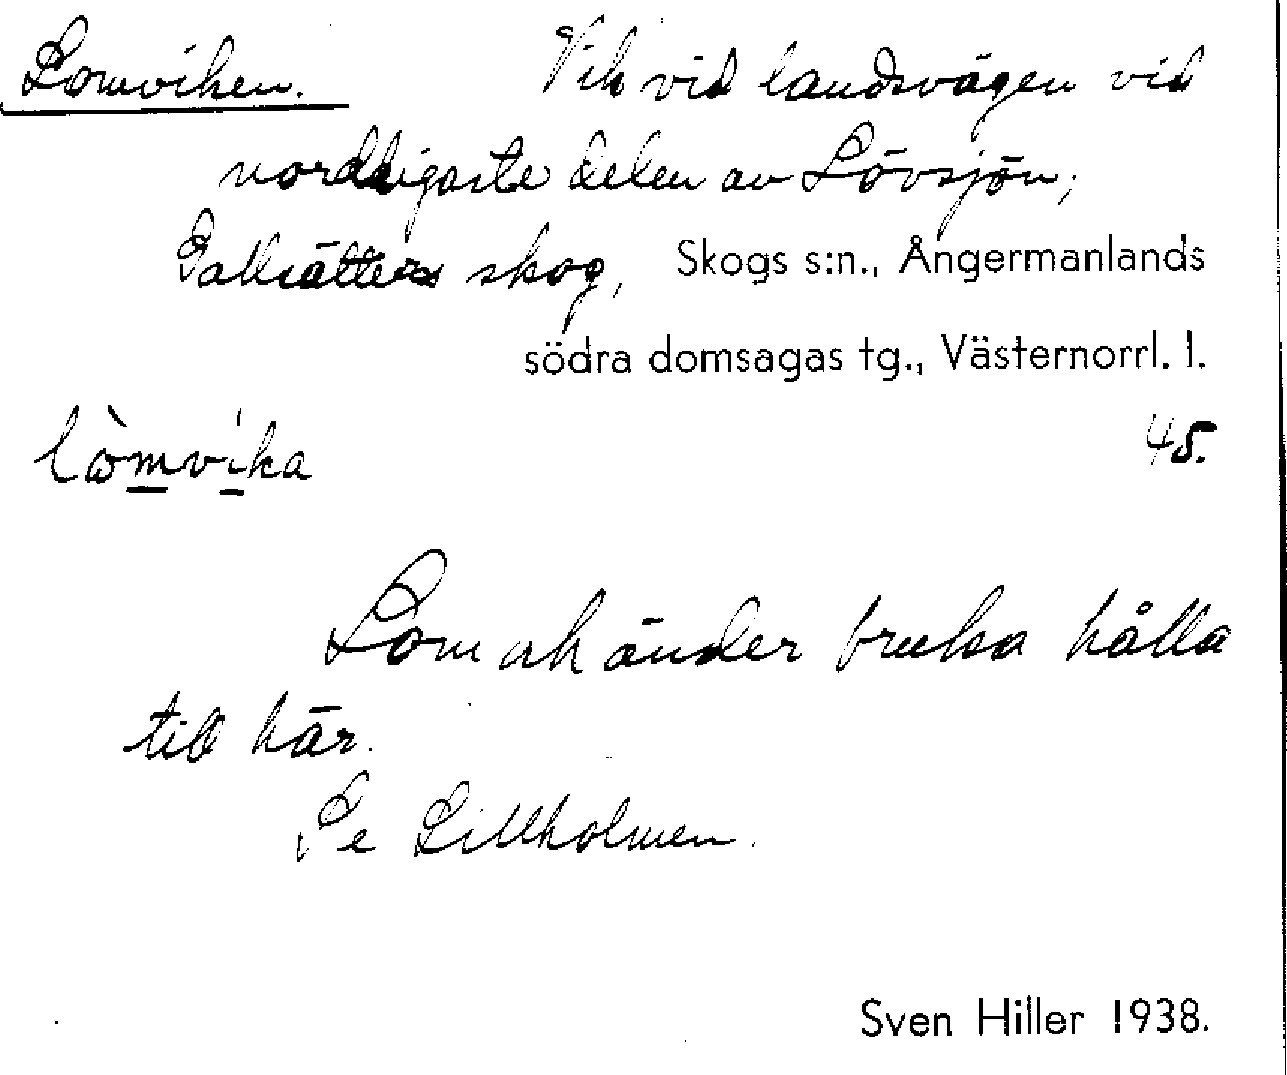 Lomviken. Vik vid landsvägen vid
nordligaste delen av Lövsjön;
Tallsätters skog, Skogs s:n., Ångermanlands
södra domsagas tg., Västernorrl. l.
lòmvika 45.
Lom ah änder bruka hålla
till här.
Se Lillholmen.
Sven Hiller 1938.